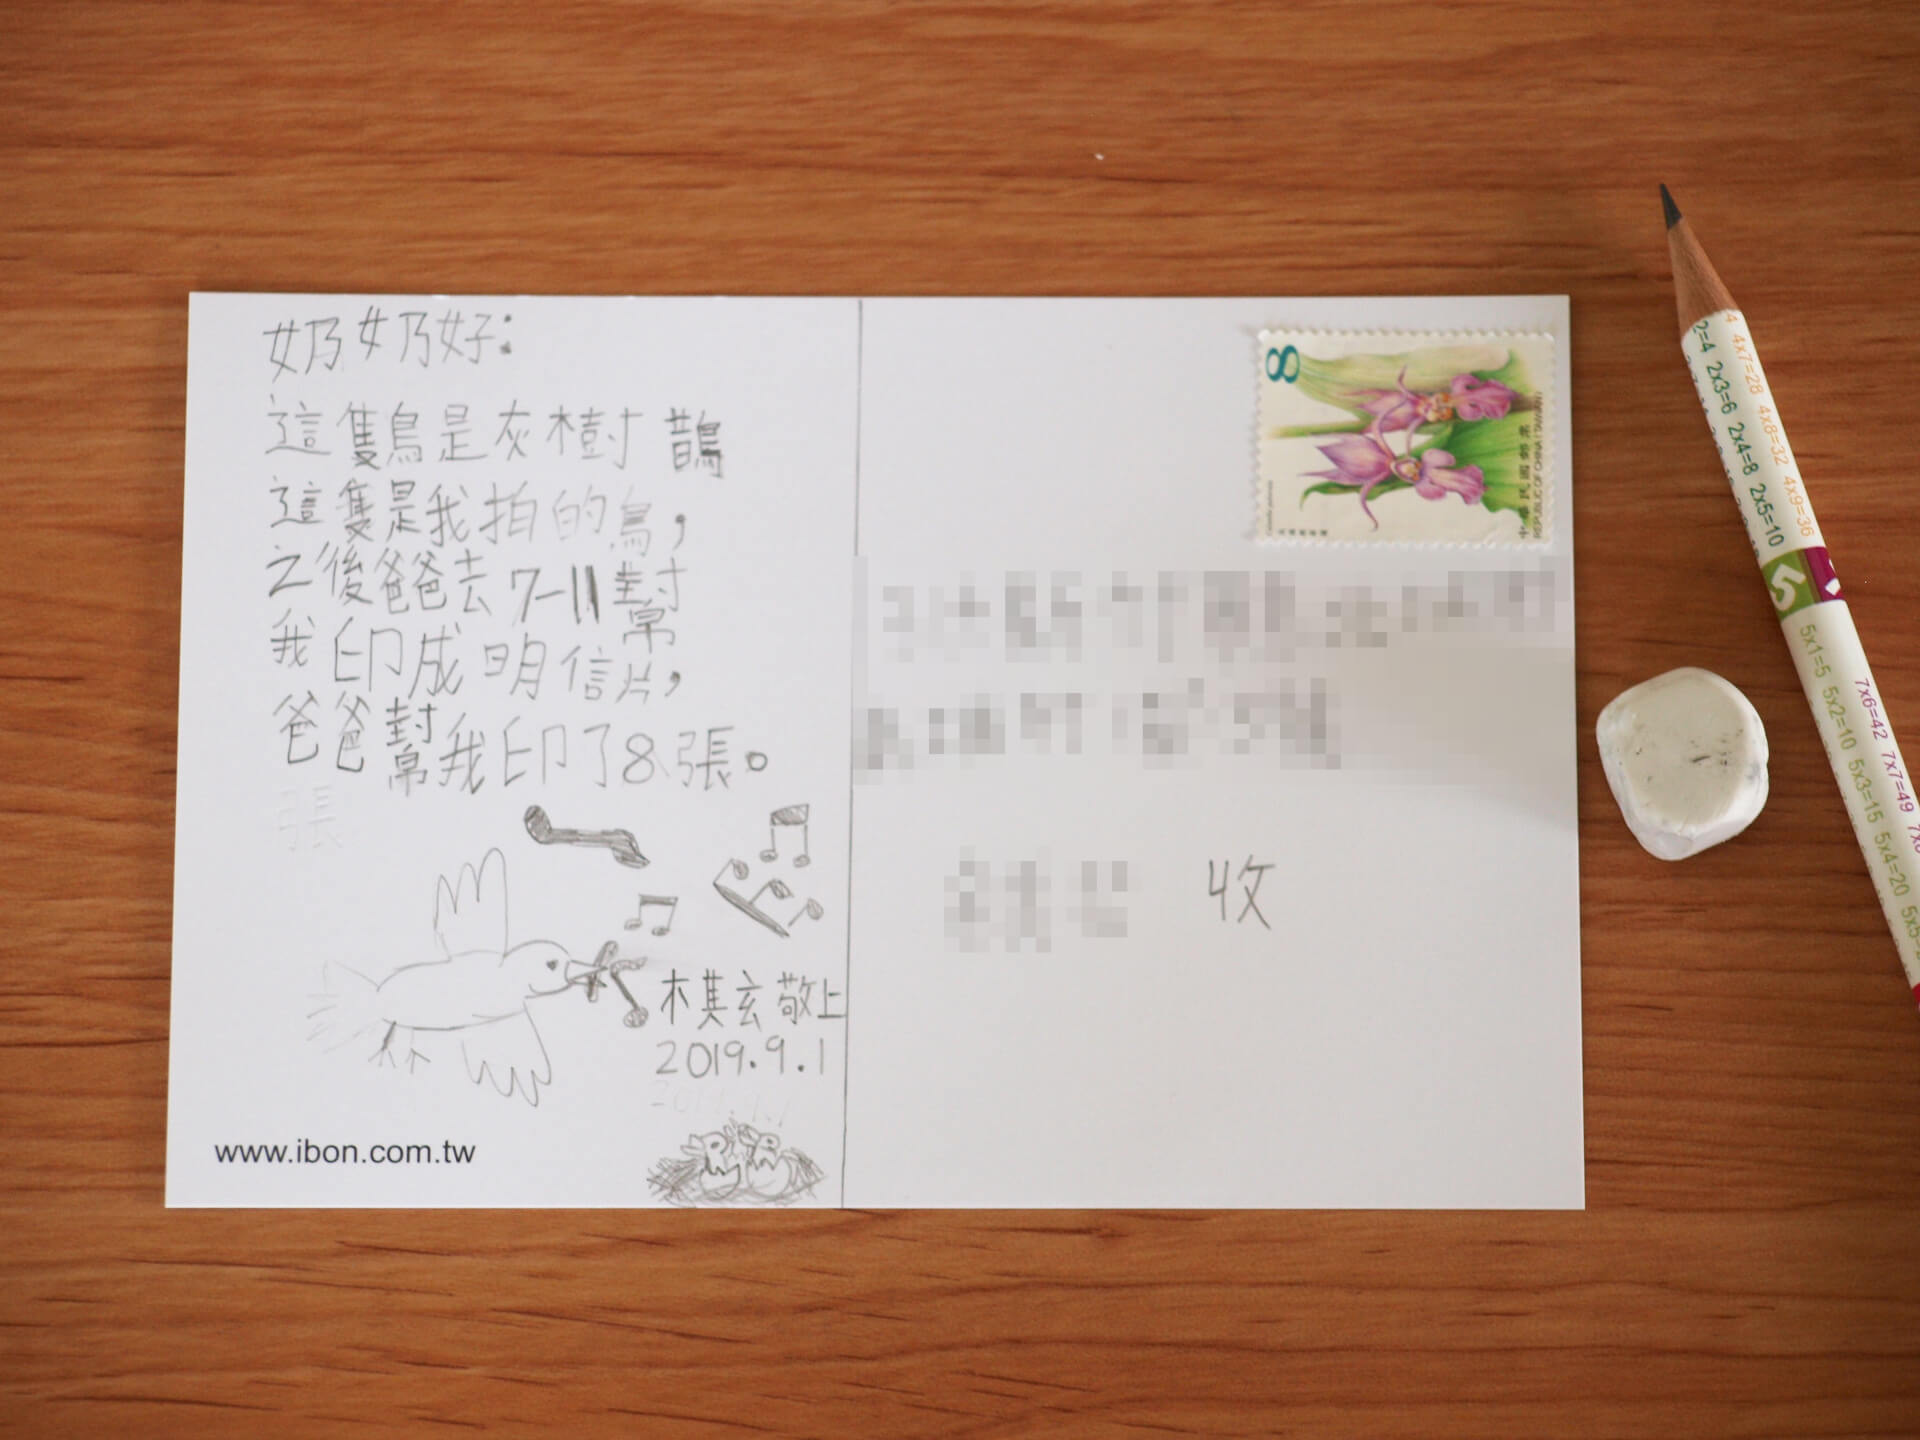 奶奶好：
這隻鳥是灰樹鵲
這隻是我拍的鳥，
之後爸爸去7-11幫
我印成明信片，
爸爸幫我印了8張。
張
木其玄敬上
2019.9.1
2019.9.1
www.ibon.com.tw
8
中華民國郵票
REPUBLIC OF CHINA (TAIWAN)
收
2=4 2x3=6 2x4=8 2x5=10
4x7=28 4x8=32 4x9=36
5x1=5 5x2=10 5x3=15 5x4=20 5x5=
7x6=42 7x7=49